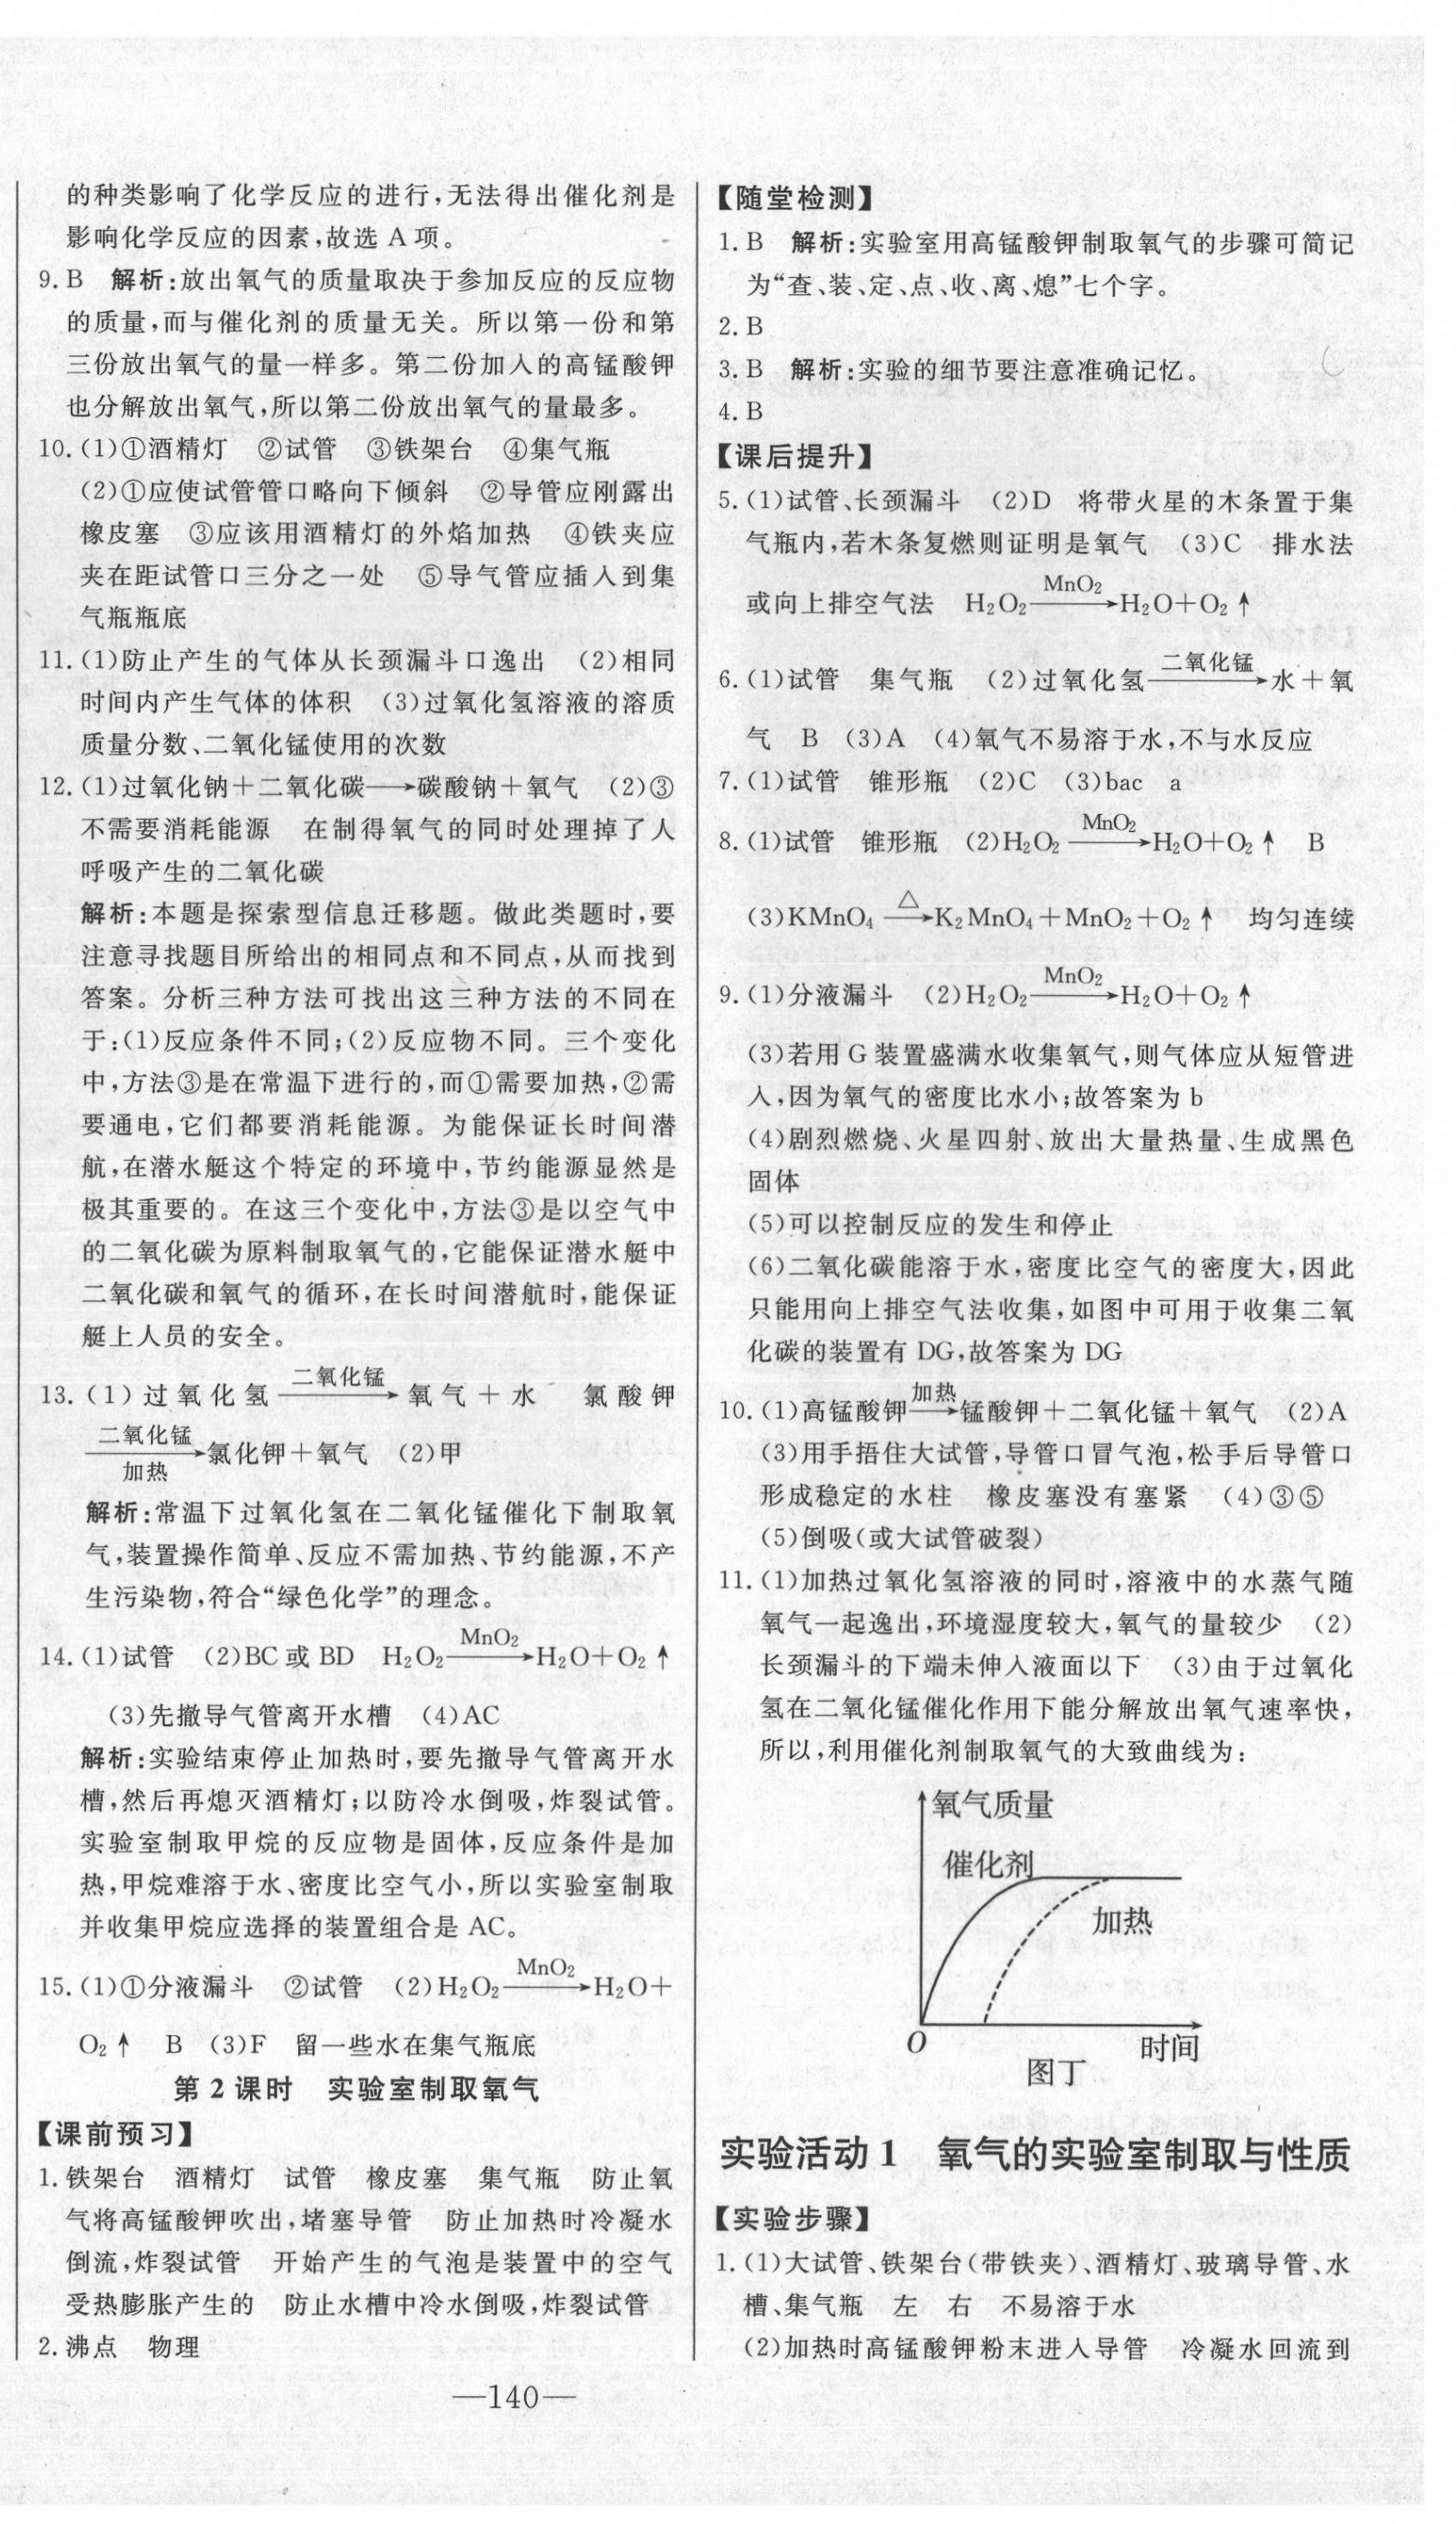 的种类影响了化学反应的进行,无法得出催化剂是
影响化学反应的因素,故选 A 项。
9. B 解析:放出氧气的质量取决于参加反应的反应物
的质量,而与催化剂的质量无关。所以第一份和第
三份放出氧气的量一样多。第二份加入的高锰酸钾
也分解放出氧气,所以第二份放出氧气的量最多。
10. (1)①酒精灯 ②试管 ③铁架台 ④集气瓶
(2)①应使试管管口略向下倾斜 ②导管应刚露出
橡皮塞 ③应该用酒精灯的外焰加热 ④铁夹应
夹在距试管口三分之一处 ⑤导气管应插入到集
气瓶瓶底
11. (1)防止产生的气体从长颈漏斗口逸出 (2)相同
时间内产生气体的体积 (3)过氧化氢溶液的溶质
质量分数、二氧化锰使用的次数
12. (1)过氧化钠＋二氧化碳⟶碳酸钠＋氧气 (2)③
不需要消耗能源 在制得氧气的同时处理掉了人
呼吸产生的二氧化碳
解析:本题是探索型信息迁移题。做此类题时,要
注意寻找题目所给出的相同点和不同点,从而找到
答案。分析三种方法可找出这三种方法的不同在
于:(1)反应条件不同;(2)反应物不同。三个变化
中,方法③是在常温下进行的,而①需要加热,②需
要通电,它们都要消耗能源。为能保证长时间潜
航,在潜水艇这个特定的环境中,节约能源显然是
极其重要的。在这三个变化中,方法③是以空气中
的二氧化碳为原料制取氧气的,它能保证潜水艇中
二氧化碳和氧气的循环,在长时间潜航时,能保证
艇上人员的安全。
二氧化锰
13. (1) 过氧化氢⟶氧气＋水 氯酸钾
二氧化锰
⟶氯化钾＋氧气 (2)甲
加热
解析:常温下过氧化氢在二氧化锰催化下制取氧
气,装置操作简单、反应不需加热、节约能源,不产
生污染物,符合“绿色化学”的理念。
MnO₂
14. (1)试管 (2)BC 或 BD H₂O₂⟶H₂O＋O₂↑
(3)先撤导气管离开水槽 (4)AC
解析:实验结束停止加热时,要先撤导气管离开水
槽,然后再熄灭酒精灯;以防冷水倒吸,炸裂试管。
实验室制取甲烷的反应物是固体,反应条件是加
热,甲烷难溶于水、密度比空气小,所以实验室制取
并收集甲烷应选择的装置组合是 AC。
MnO₂
15. (1)①分液漏斗 ②试管 (2)H₂O₂⟶H₂O＋
O₂↑ B (3)F 留一些水在集气瓶底
第 2 课时 实验室制取氧气
【课前预习】
1. 铁架台 酒精灯 试管 橡皮塞 集气瓶 防止氧
气将高锰酸钾吹出,堵塞导管 防止加热时冷凝水
倒流,炸裂试管 开始产生的气泡是装置中的空气
受热膨胀产生的 防止水槽中冷水倒吸,炸裂试管
2. 沸点 物理
【随堂检测】
1. B 解析:实验室用高锰酸钾制取氧气的步骤可简记
为“查、装、定、点、收、离、熄”七个字。
2. B
3. B 解析:实验的细节要注意准确记忆。
4. B
【课后提升】
5. (1)试管、长颈漏斗 (2)D 将带火星的木条置于集
气瓶内,若木条复燃则证明是氧气 (3)C 排水法
MnO₂
或向上排空气法 H₂O₂⟶H₂O＋O₂↑
二氧化锰
6. (1)试管 集气瓶 (2)过氧化氢⟶水＋氧
气 B (3)A (4)氧气不易溶于水,不与水反应
7. (1)试管 锥形瓶 (2)C (3)bac a
MnO₂
8. (1)试管 锥形瓶 (2)H₂O₂⟶H₂O＋O₂↑ B
△
(3)KMnO₄⟶K₂MnO₄＋MnO₂＋O₂↑ 均匀连续
MnO₂
9. (1)分液漏斗 (2)H₂O₂⟶H₂O＋O₂↑
(3)若用 G 装置盛满水收集氧气,则气体应从短管进
入,因为氧气的密度比水小;故答案为 b
(4)剧烈燃烧、火星四射、放出大量热量、生成黑色
固体
(5)可以控制反应的发生和停止
(6)二氧化碳能溶于水,密度比空气的密度大,因此
只能用向上排空气法收集,如图中可用于收集二氧
化碳的装置有 DG,故答案为 DG
加热
10. (1)高锰酸钾⟶锰酸钾＋二氧化锰＋氧气 (2)A
(3)用手捂住大试管,导管口冒气泡,松手后导管口
形成稳定的水柱 橡皮塞没有塞紧 (4)③⑤
(5)倒吸(或大试管破裂)
11. (1)加热过氧化氢溶液的同时,溶液中的水蒸气随
氧气一起逸出,环境湿度较大,氧气的量较少 (2)
长颈漏斗的下端未伸入液面以下 (3)由于过氧化
氢在二氧化锰催化作用下能分解放出氧气速率快,
所以,利用催化剂制取氧气的大致曲线为:
氧气质量
催化剂
加热
O
时间
图丁
实验活动 1 氧气的实验室制取与性质
【实验步骤】
1. (1)大试管、铁架台(带铁夹)、酒精灯、玻璃导管、水
槽、集气瓶 左 右 不易溶于水
(2)加热时高锰酸钾粉末进入导管 冷凝水回流到
—140—